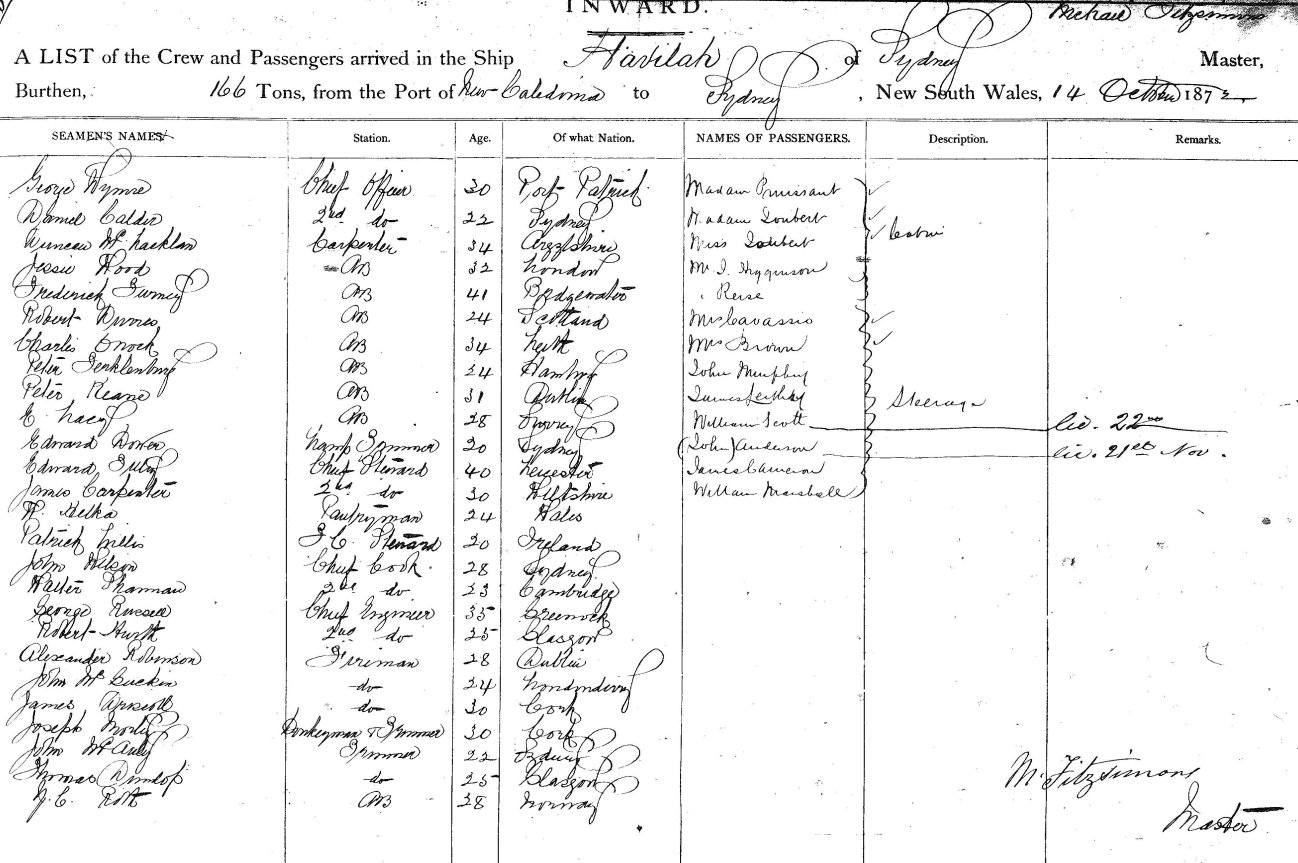 INWARD.
Michael Fitzsimons
A LIST of the Crew and Passengers arrived in the Ship Havilah of Sydney Master,
Burthen, 166 Tons, from the Port of New Caledonia to Sydney, New South Wales, 14 October 1872
SEAMEN'S NAMES Station. Age. Of what Nation. NAMES OF PASSENGERS. Description. Remarks.
George Wymre Chief Officer 30 Port Patrick Madam Puissant
Daniel Calder 2nd do 22 Sydney Madam Joubert
McLachlan Carpenter 34 Argylshire Miss Joubert Cabin
Jessie Wood AB 32 London Mr J. Higginson
Frederick Gurney AB 41 Bridgewater Reise
Robert AB 24 Scotland Mrs Cavassio
Charles Enoch AB 34 Leith Mrs Brown
Peter AB 24 Hamburg John Murphy
Peter Keane AB 31 Dublin James Steerage
E Lacy AB 28 Surrey William Scott lic. 22
Edward Bower Lamp Trimmer 20 Sydney (John) Anderson lic. 21 Nov.
Edward Chief Steward 40 Leicester James Cameron
James Carpenter 2nd do 30 Wiltshire William Marshall
W. Pantryman 24 Wales
Patrick Lillis F. C. Steward 20 Ireland
John Wilson Chief Cook. 28 Sydney
Walter Sharman 2nd do 23 Cambridge
George Russell Chief Engineer 35 Greenock
Robert 2nd do 25 Glasgow
Alexander Robinson Fireman 28 Dublin
John McGuckin do 24 Londonderry
James Driscoll do 30 Cork
Joseph Donkeyman & Trimmer 30 Cork
John McAuly Trimmer 22 Sydney
Thomas Dunlop do 25 Glasgow
AB 28 Norway
M. Fitzsimons
Master